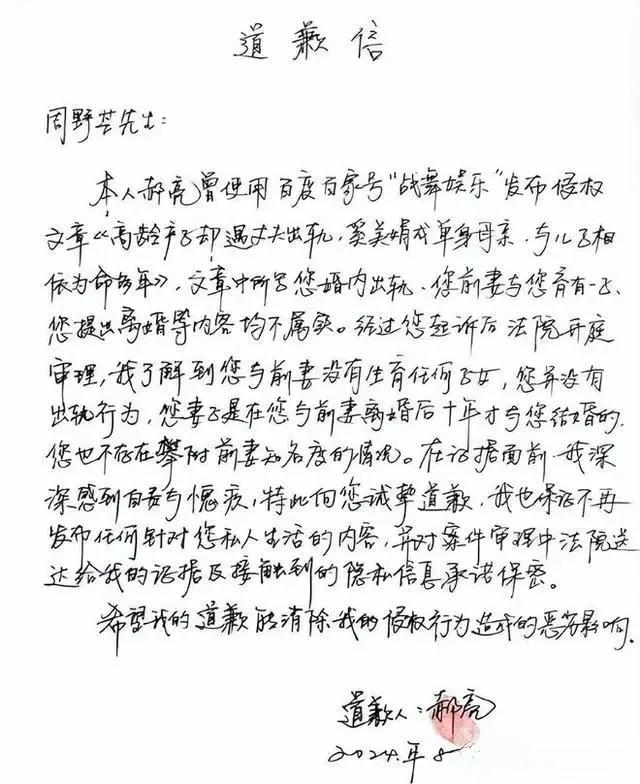 道歉信
周野芒先生：
本人郝亮曾使用百度百家号“战舞娱乐”发布侵权
文章《高龄产子却遇丈夫出轨，奚美娟成单身母亲，与儿子相
依为命多年》，文章中所写您婚内出轨、您前妻与您育有一子、
您提出离婚等内容均不属实。经过您起诉后法院开庭
审理，我了解到您与前妻没有生育任何子女，您并没有
出轨行为，您妻子是在您与前妻离婚后十年才与您结婚的，
您也不存在攀附前妻知名度的情况。在证据面前，我深
深感到自责与愧疚，特此向您诚挚道歉，我也保证不再
发布任何针对您私人生活的内容，并对案件审理中法院送
达给我的证据及接触到的隐私信息承诺保密。
希望我的道歉能消除我的侵权行为造成的恶劣影响。
道歉人：郝亮
2024.年8